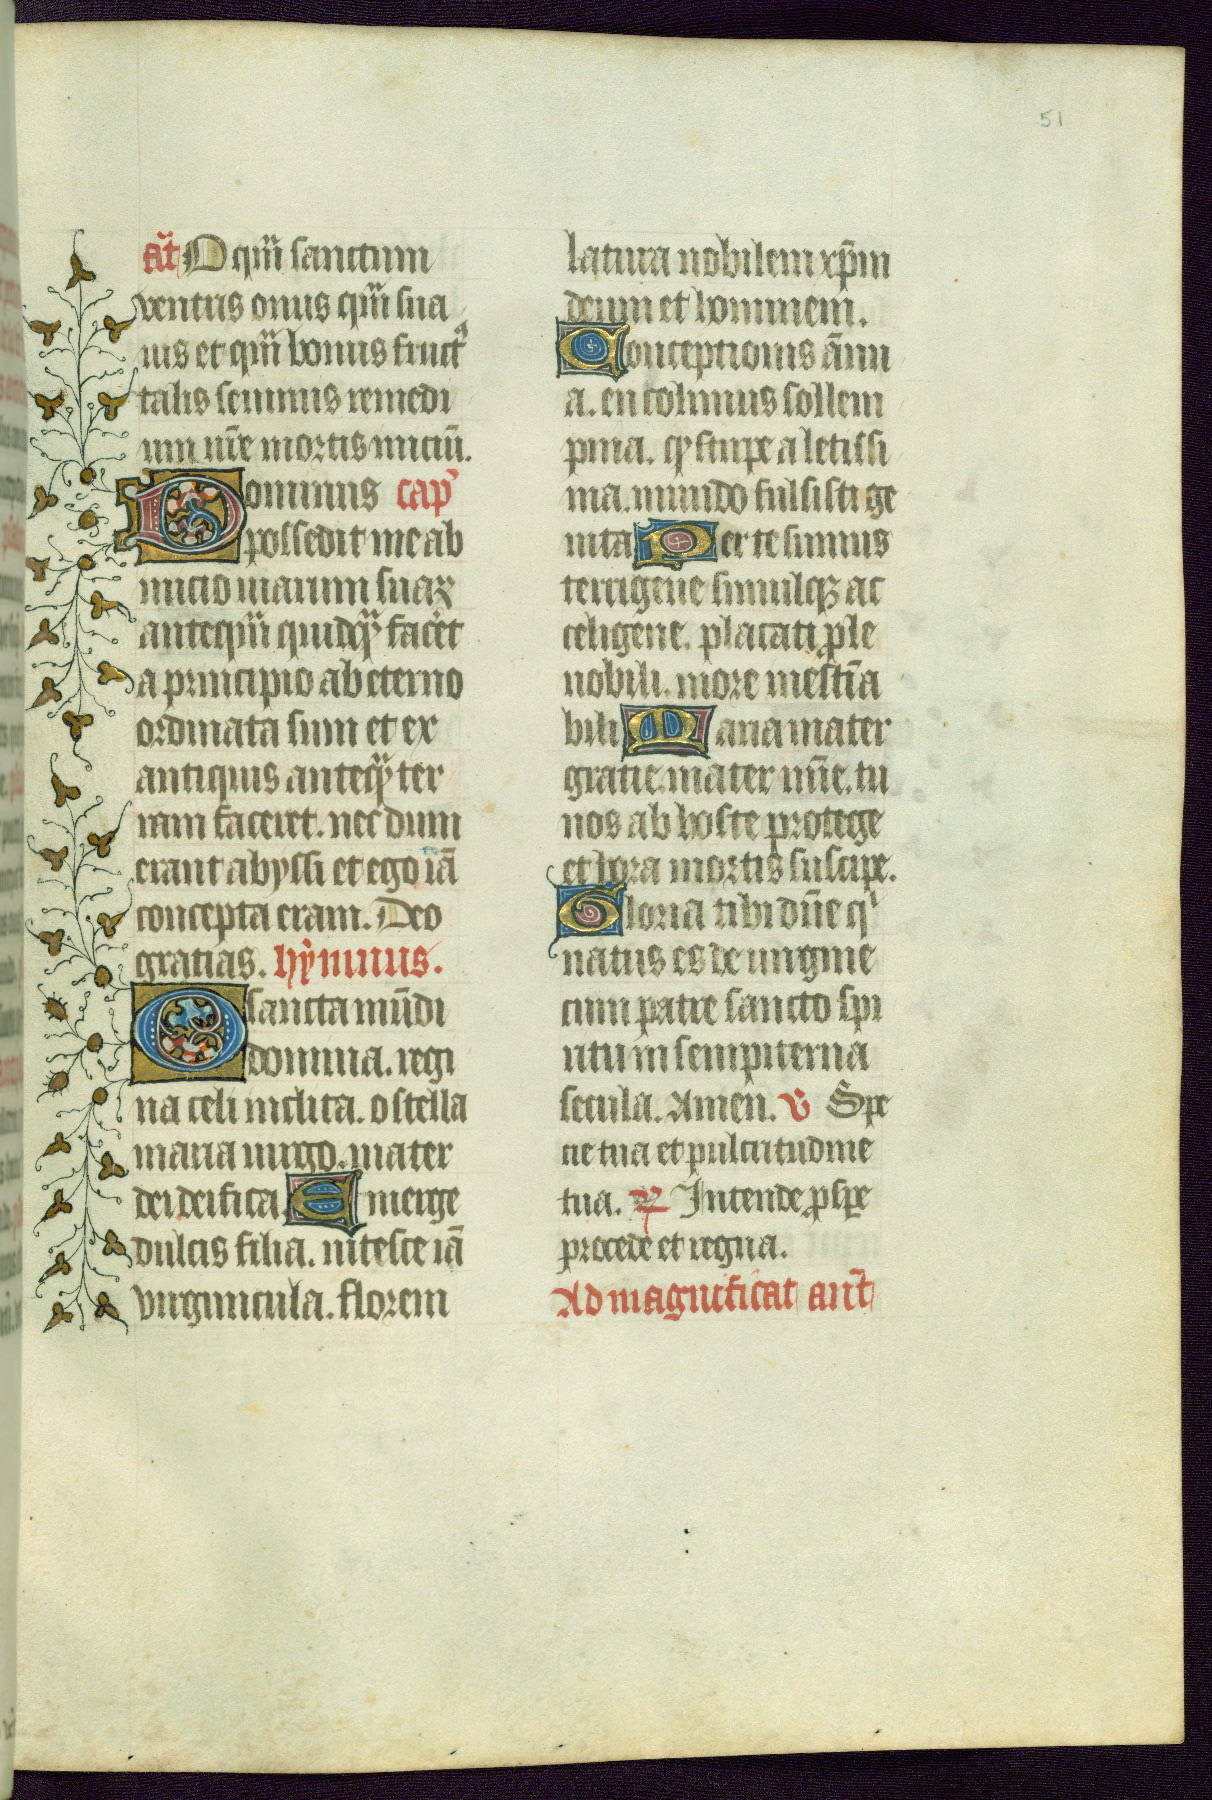 51
an̄t O qm̄ sanctum
ventris onus qm̄ sua
uis et qm̄ bonus fruct9
talis seminis remedi
um nr̄e mortis iniciū.
Dominus cap̄
possedit me ab
inicio uiarum suaꝝ
anteqm̄ quidqꝫ facēt
a principio ab eterno
ordinata sum et ex
antiquis anteqꝫ ter
ram faceret. nec dum
erant abyssi et ego iā
concepta eram. Deo
gratias. hẏmnus.
O sancta mūdi
domina. regi
na celi inclita. o stella
maria uirgo. mater
dei deifica. Emerge
dulcis filia. nitesce iā
virguncula. florem
latura nobilem xp̄m
deum et hominem.
Conceptionis ānu
a. en colimus sollem
pnia. qꝫ stirpe a letissi
ma. mundo fulsisti ge
nita Per te sumus
terrigene simulqꝫ ac
celigene. placati ꝓle
nobili. more inestīa
bili Maria mater
gratie. mater mīe. tu
nos ab hoste protege
et hora mortis suscipe.
Gloria tibi dn̄e qi
natus es de uirgine
cum patre sancto spi
ritu in sempiterna
secula. Amen. v̄ Spe
cie tua et pulcritudine
tua. ꝶ Intende ꝓsꝑe
procede et regna.
Ad magnificat an̄t